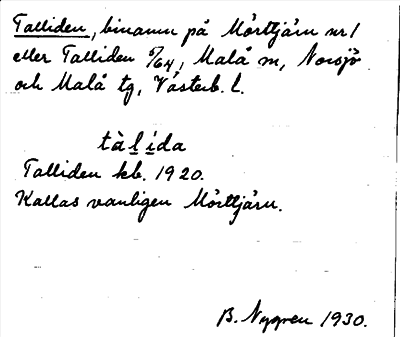 Talliden, binamn på Mörttjärn nr 1
eller Talliden 5/64, Malå sn, Norsjö
och Malå tg, Västerb. l.
tàl̲i̲da
Talliden kb. 1920.
Kallas vanligen Mörttjärn.
B. Nygren 1930.